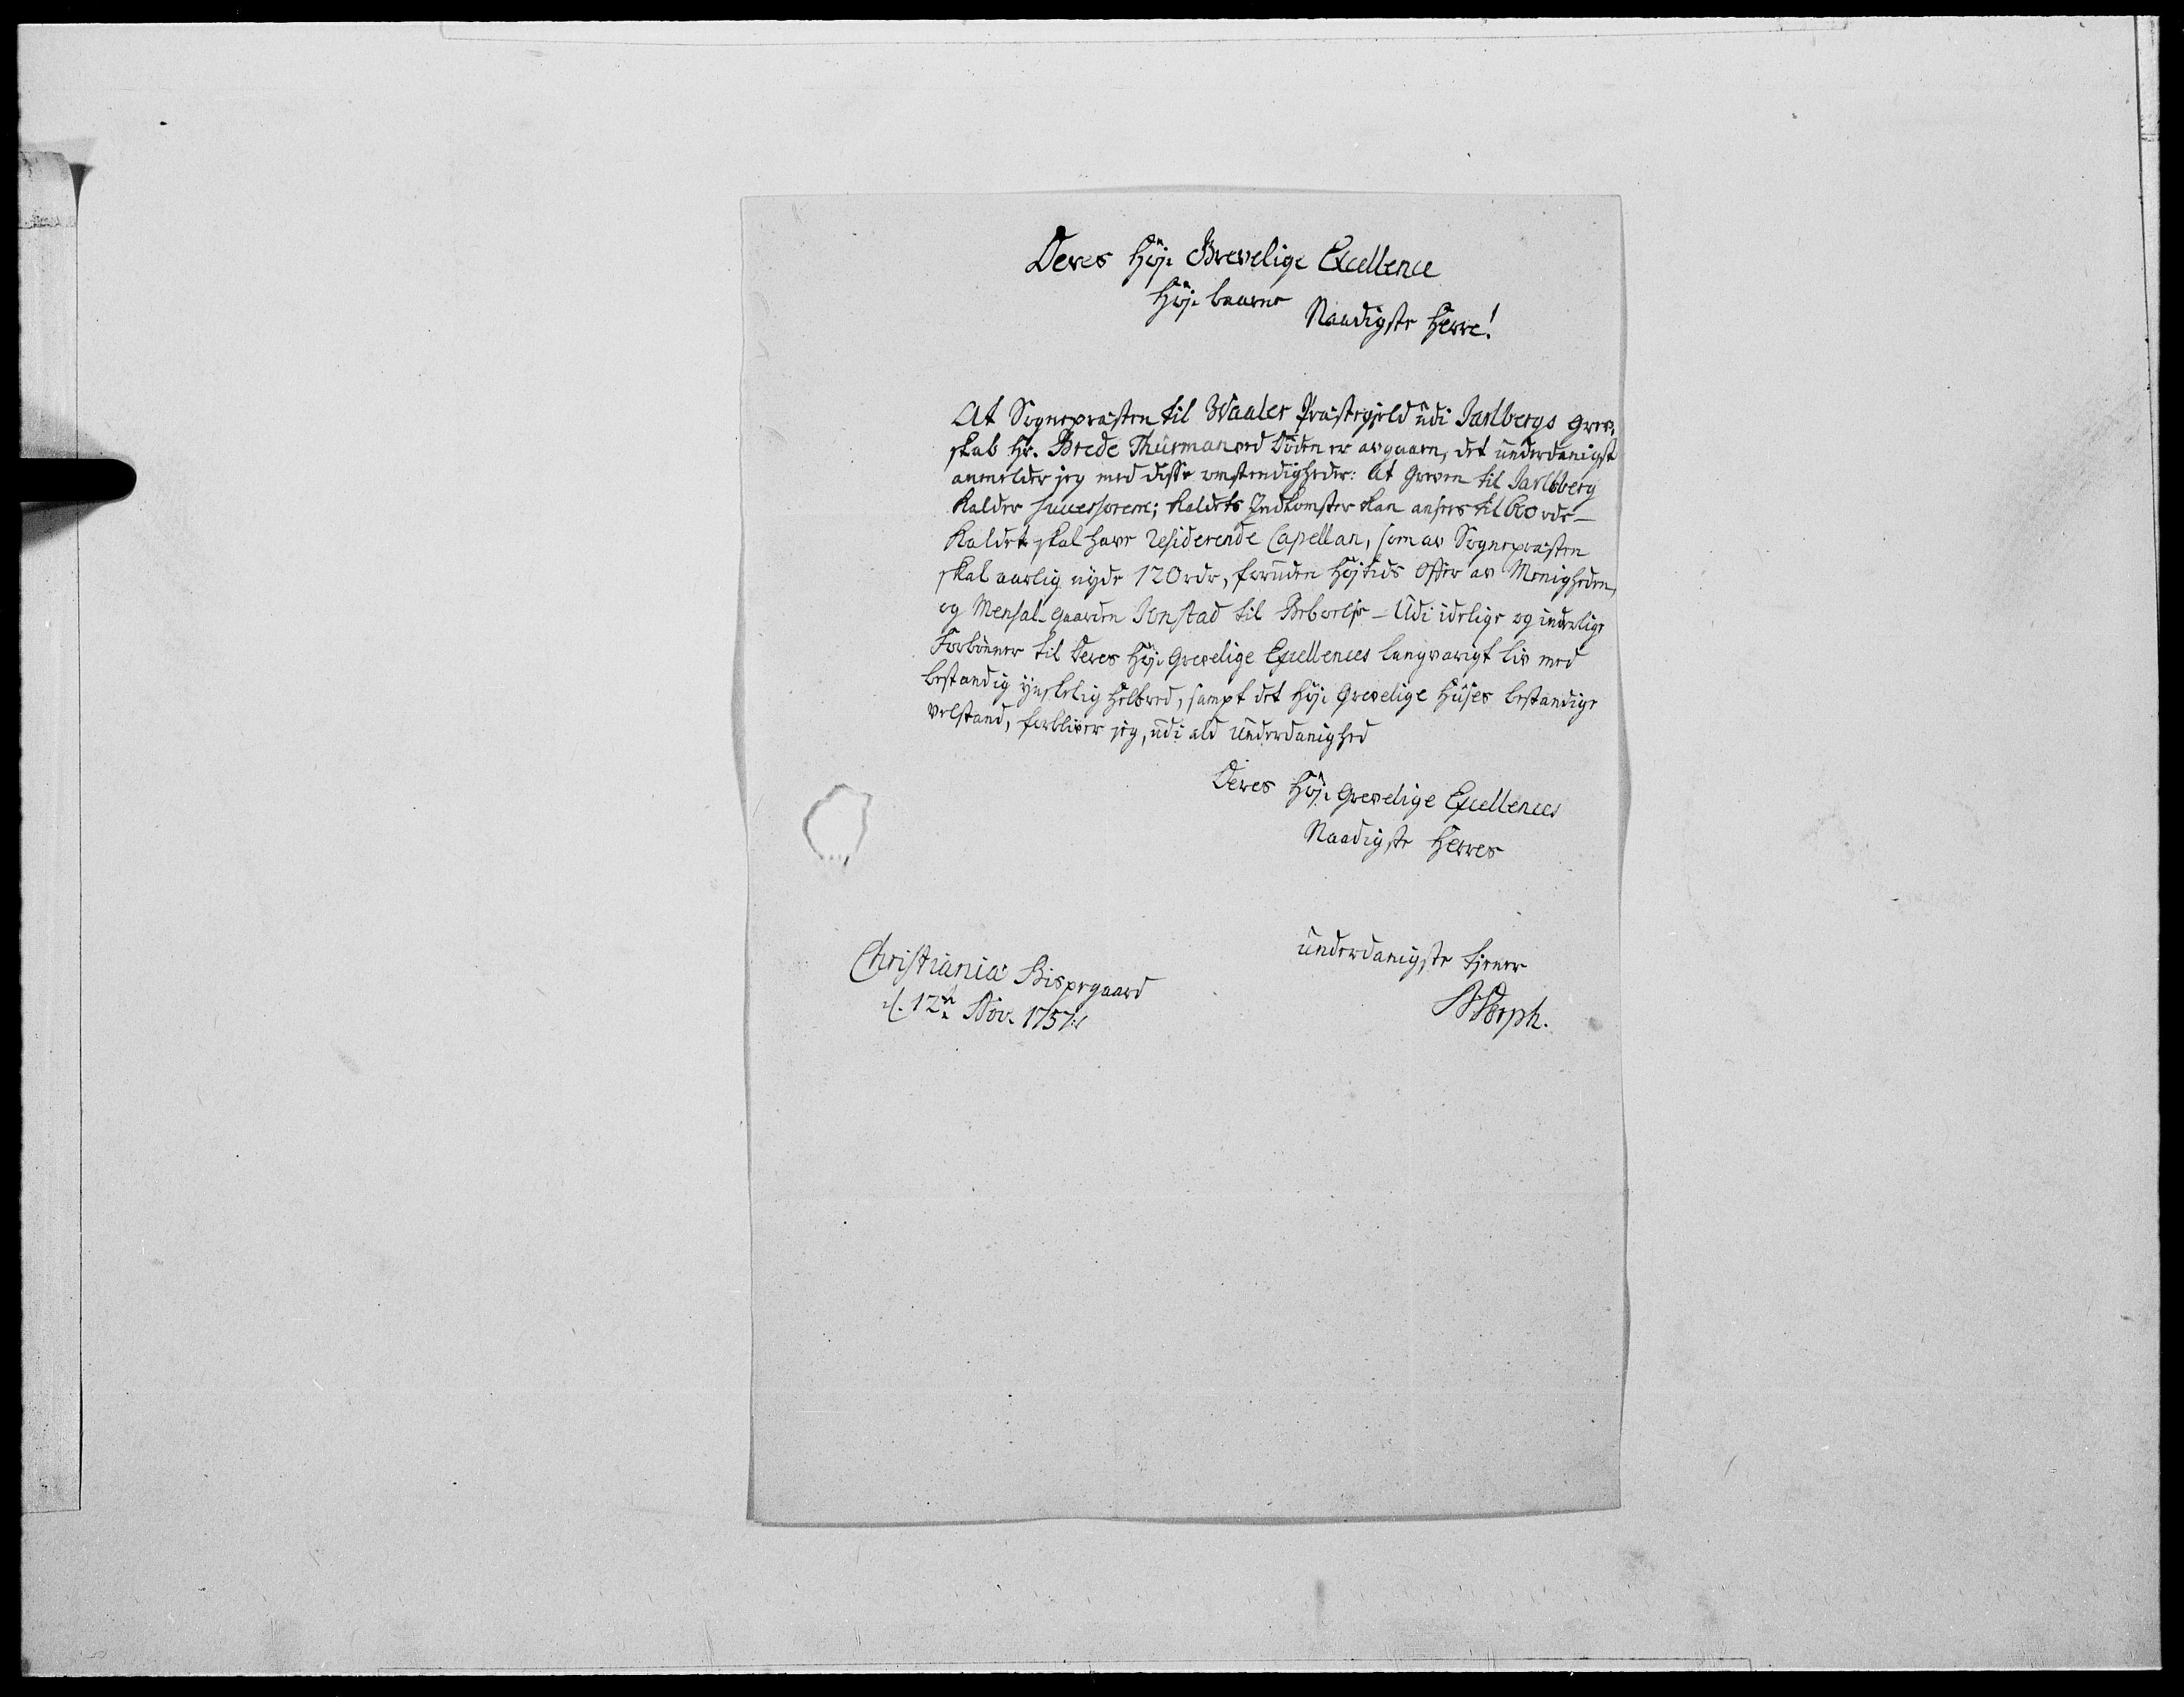 Deres Høj Grevelige Excellence
Høj baarne
Naadigste Herre!
At Sognepræsten til Waaler Præstegjeld udi Jarlbergs Grev-
skab Hr. Brede Thurman ved Døden er avgaaen, det underdanigst
anmelder jeg med disse omstendigheder: At Greven til Jarlsberg
kalder successorem; kaldets Indkomster kan ansees til 600 rdr -
Kaldet skal have residerende Capellan, som av Sognepræsten
skal aarlig nyde 120 rdr, foruden Højtids Offer av Menigheden,
og Mensal-Gaarden Jonstad til Beboelse - Udi idelige og inderlige
Forbønner til Deres Høj Grevelige Excellences langvarigt liv med
bestandig ynskelig Helbred, sampt det Høj Grevelige Huses bestandige
velstand, forbliver jeg, udi ald underdanighed
Deres Høj Grevelige Excellences
Naadigste Herres
underdanigste tjener
Christiania Bispegaard
d. 12te Nov. 1757
Dorph.